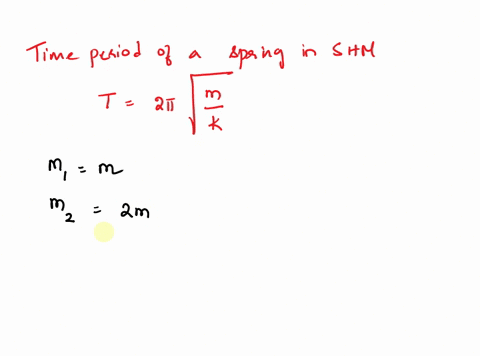 Time period of a spring in SHM
T = 2π √(m/k)
m₁ = m
m₂ = 2m